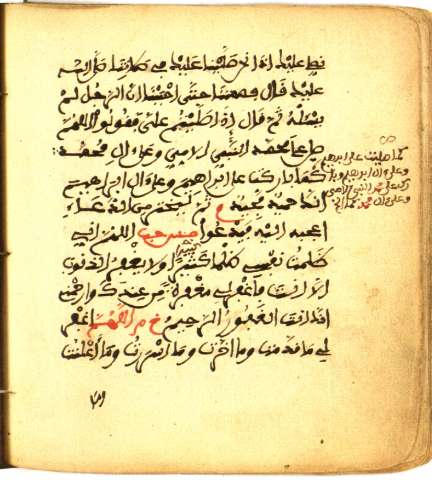 عليك اذا نحن صلينا عليك في صلاتنا صلى الله
عليك قال فصمت حتى احببنا ان الرجل لم
يسئله ثم قال اذا صليتم علي فقولوا اللهم
صل على محمد النبي الامي وعلى ال محمد
كما باركت على ابراهيم وعلى ال ابراهيم
انك حميد مجيد ثم ليتخير من الدعاء
اعجبه اليه فيدعوا اللهم اني
ظلمت نفسي ظلما كثيرا ولا يغفر الذنوب
الا انت فاغفر لي مغفرة من عندك وارحمني
انك انت الغفور الرحيم خ م اللهم اغفر
لي ما قدمت وما اخرت وما اسررت وما اعلنت
كما صليت على ابراهيم
وعلى ال ابراهيم وبا
رك على محمد النبي الامي
وعلى ال محمد كما